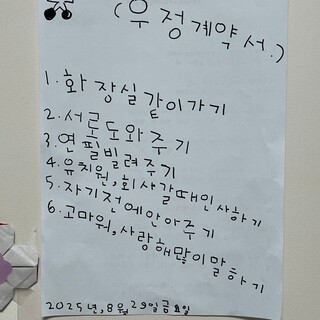 (우정계약서.)
1. 화장실같이가기
2. 서로도와주기
3. 연필빌려주기
4. 유치원,회사갈때인사하기
5. 자기전에안아주기
6. 고마워,사랑해많이말하기
2025년,8월29일금요일